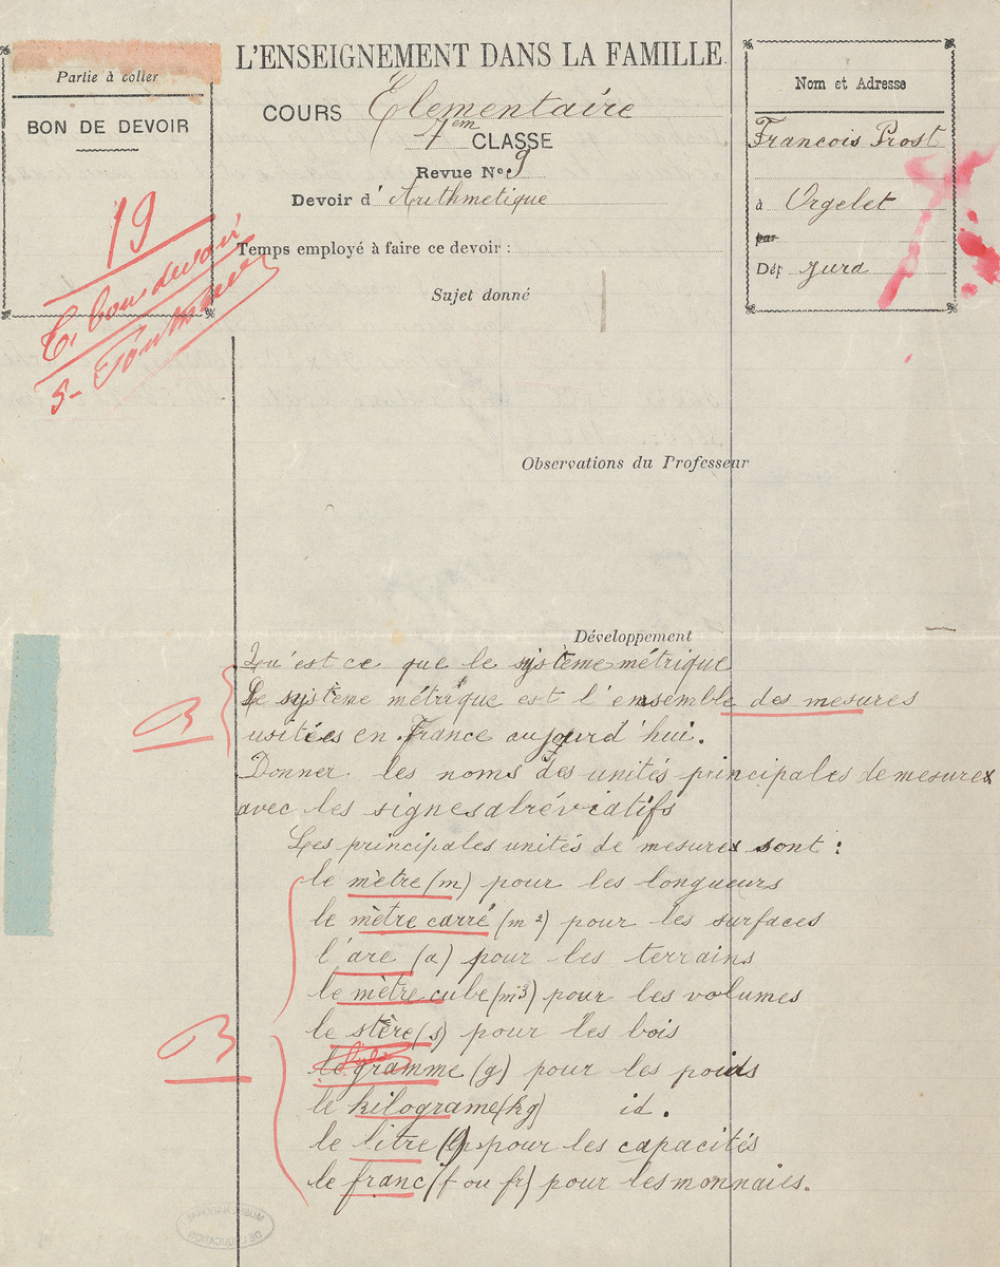 Partie à coller
BON DE DEVOIR
19
T. bon devoir
L'ENSEIGNEMENT DANS LA FAMILLE
COURS Elementaire
7em CLASSE
Revue No 9
Devoir d' Arithmetique
Temps employé à faire ce devoir :
Sujet donné
Nom et Adresse
Francois Prost
à Orgelet
par
Dép Jura
Observations du Professeur
Développement
Qu'est ce que le système métrique
B
Le système métrique est l'ensemble des mesures
usitées en France aujourd'hui.
Donner les noms des unités principales de mesures
avec les signes abréviatifs
Les principales unités de mesures sont :
le mètre (m) pour les longueurs
le mètre carré (m2) pour les surfaces
l'are (a) pour les terrains
le mètre cube (m3) pour les volumes
B
le stère (s) pour les bois
le gramme (g) pour les poids
le kilograme (kg) id.
le litre (l) pour les capacités
le franc (f ou fr) pour les monnaies.